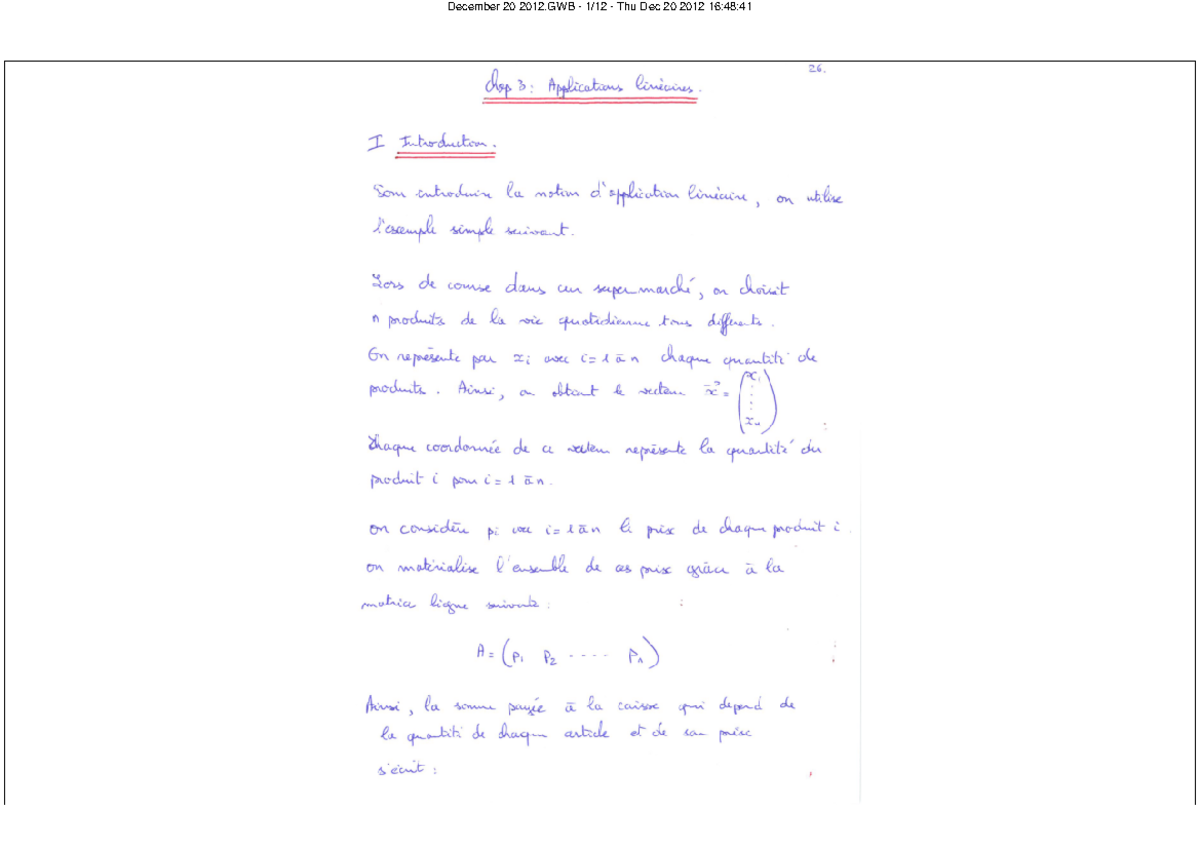 December 20 2012.GWB - 1/12 - Thu Dec 20 2012 16:48:41
26.
Chap 3 : Applications linéaires.
I Introduction.
Pour introduire la notion d'application linéaire, on utilise
l'exemple simple suivant.
Lors de course dans un supermarché, on choisit
n produits de la vie quotidienne tous différents.
On représente par xi avec i = 1 à n chaque quantité de
produits. Ainsi, on obtient le vecteur x⃗ = (x1 ⋮ xn)
Chaque coordonnée de ce vecteur représente la quantité du
produit i pour i = 1 à n.
on considère pi avec i = 1 à n le prix de chaque produit i.
on matérialise l'ensemble de ces prix grâce à la
matrice ligne suivante :
A = (p1 p2 ..... pn)
Ainsi, la somme payée à la caisse qui dépend de
la quantité de chaque article et de son prix
s'écrit :